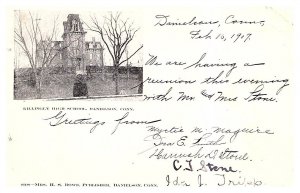 Danielson, Conn.
Feb 10, 1907.
We are having a
reunion this evening
with Mr & Mrs Stone.
KILLINGLY HIGH SCHOOL, DANIELSON, CONN.
Greetings from
Myrtie M. Maguire
Iva E.
Hannah D. Stone.
C. T. Stone.
Ida J. Tripp.
MRS. H. S. BOWD, PUBLISHER, DANIELSON, CONN.